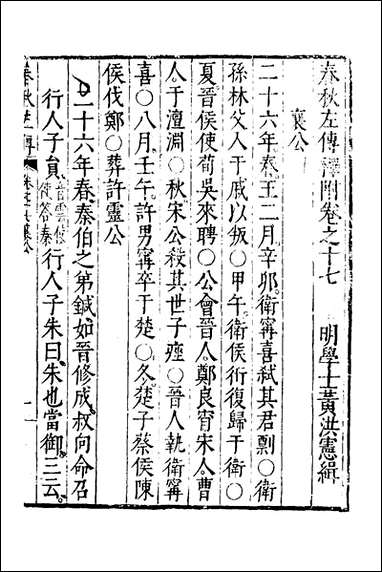 春秋左傳釋附卷之十七　明學士黃洪憲緝
襄公
二十六年春王二月辛卯衛甯喜弒其君剽○衛
孫林父入于戚以叛○甲午衛侯衎復歸于衛○
夏晉侯使荀吳來聘○公會晉人鄭良宵宋人曹
人于澶淵○秋宋公殺其世子痤○晉人執衛甯
喜○八月壬午許男甯卒于楚○冬楚子蔡侯陳
侯伐鄭○葬許靈公
二十六年春秦伯之弟鍼如晉修成叔向命召
行人子員
行人子朱曰朱也當御三云
春秋左傳